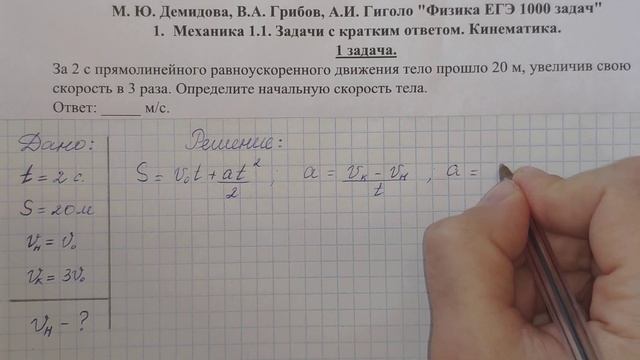 М. Ю. Демидова, В.А. Грибов, А.И. Гиголо "Физика ЕГЭ 1000 задач"
1. Механика 1.1. Задачи с кратким ответом. Кинематика.
1 задача.
За 2 с прямолинейного равноускоренного движения тело прошло 20 м, увеличив свою
скорость в 3 раза. Определите начальную скорость тела.
Ответ: _____ м/с.
Дано: Решение:
t = 2 с. S = v₀t + at²/2 ; a = (vк - vн)/t ; a =
S = 20 м
vн = v₀
vк = 3v₀
vн - ?